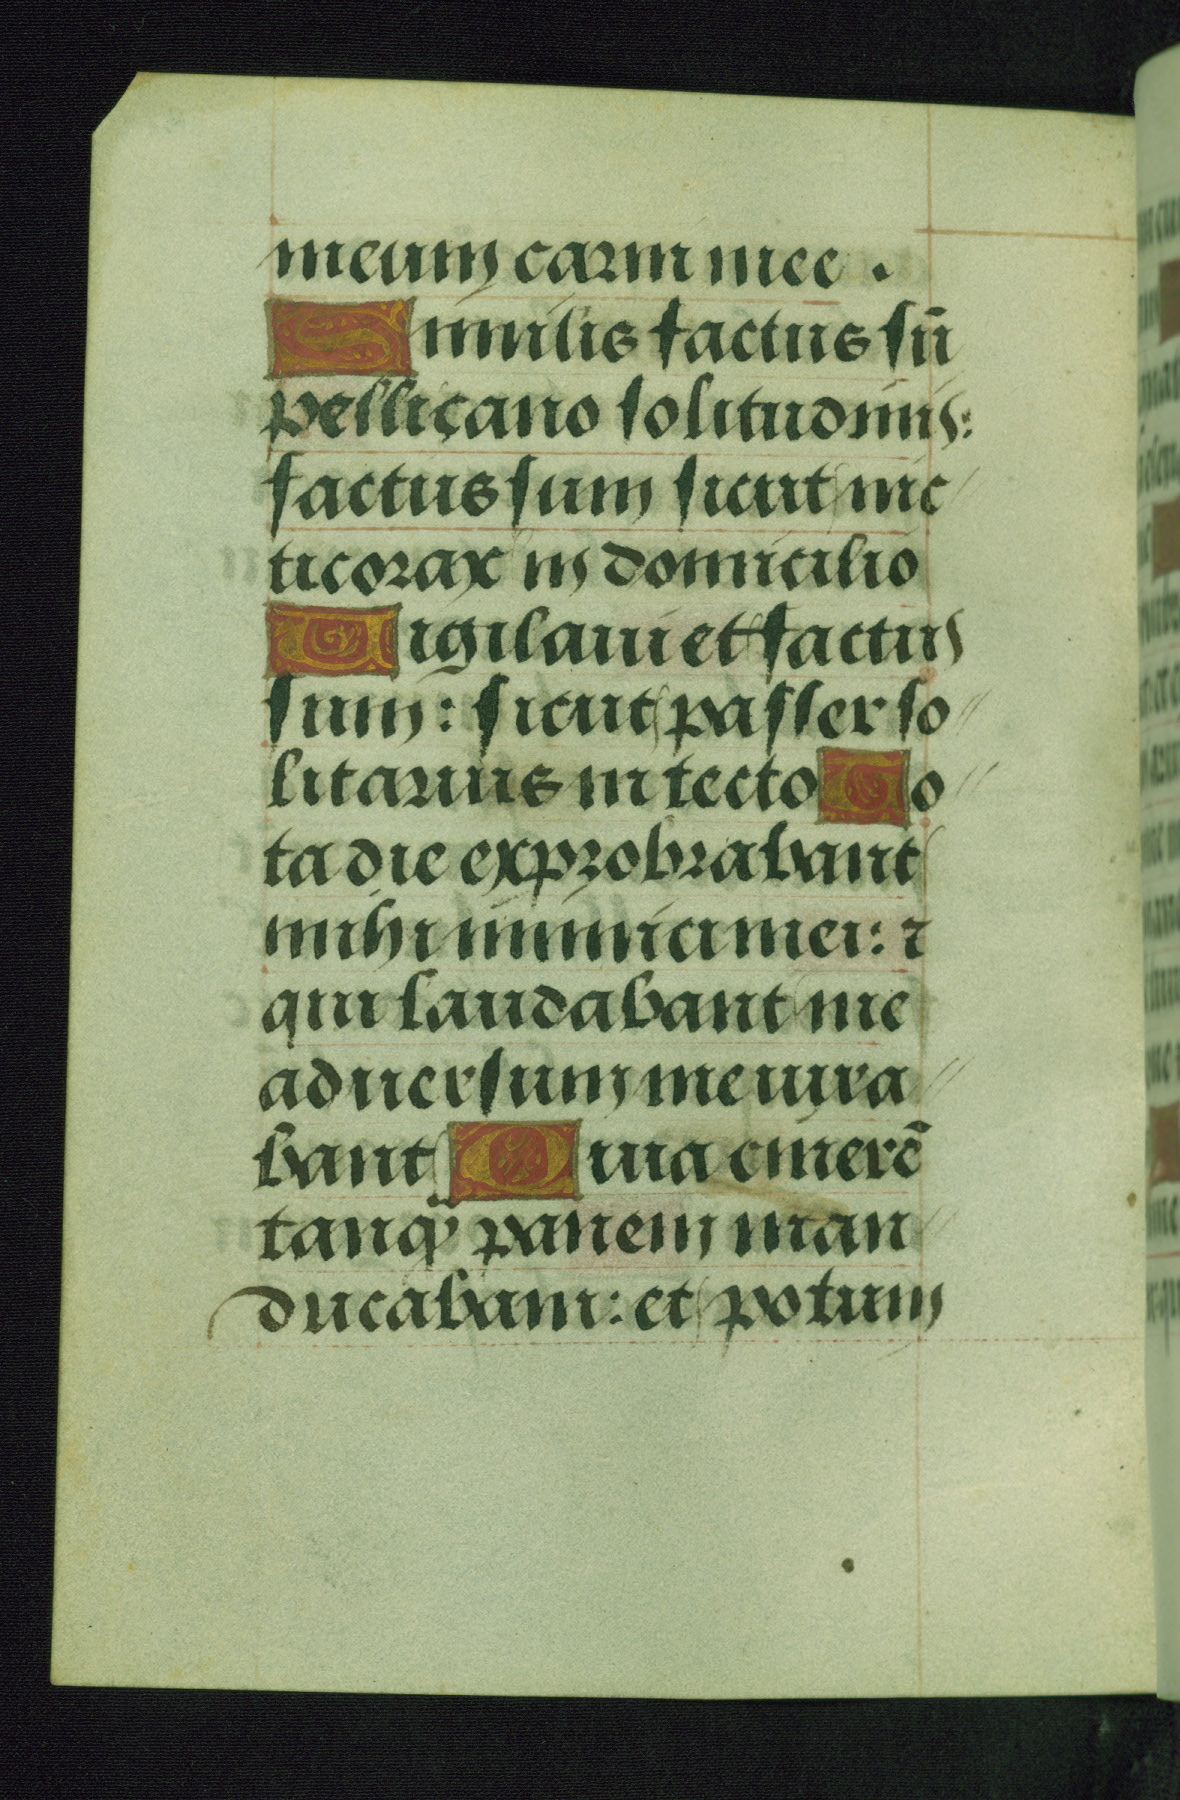 meum carni mee .
Similis factus sũ
pellicano solitudinis:
factus sum sicut nic
ticorax in domicilio
Vigilaui et factus
sum: sicut passer so
litarius in tecto To
ta die exprobrabant
mihi inimici mei: ⁊
qui laudabant me
aduersum me iura
bant Quia cinerẽ
tanq̃ panem man
ducabam: et potum